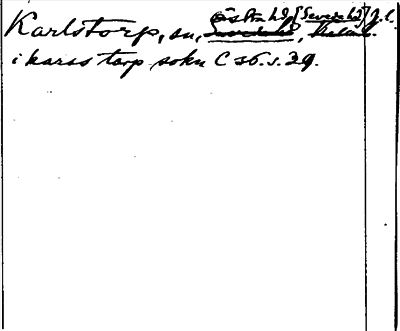 Karlstorp, sn, Östra hd [Sevede hd] J.l.
i karss torp sokn C 26. s. 39.